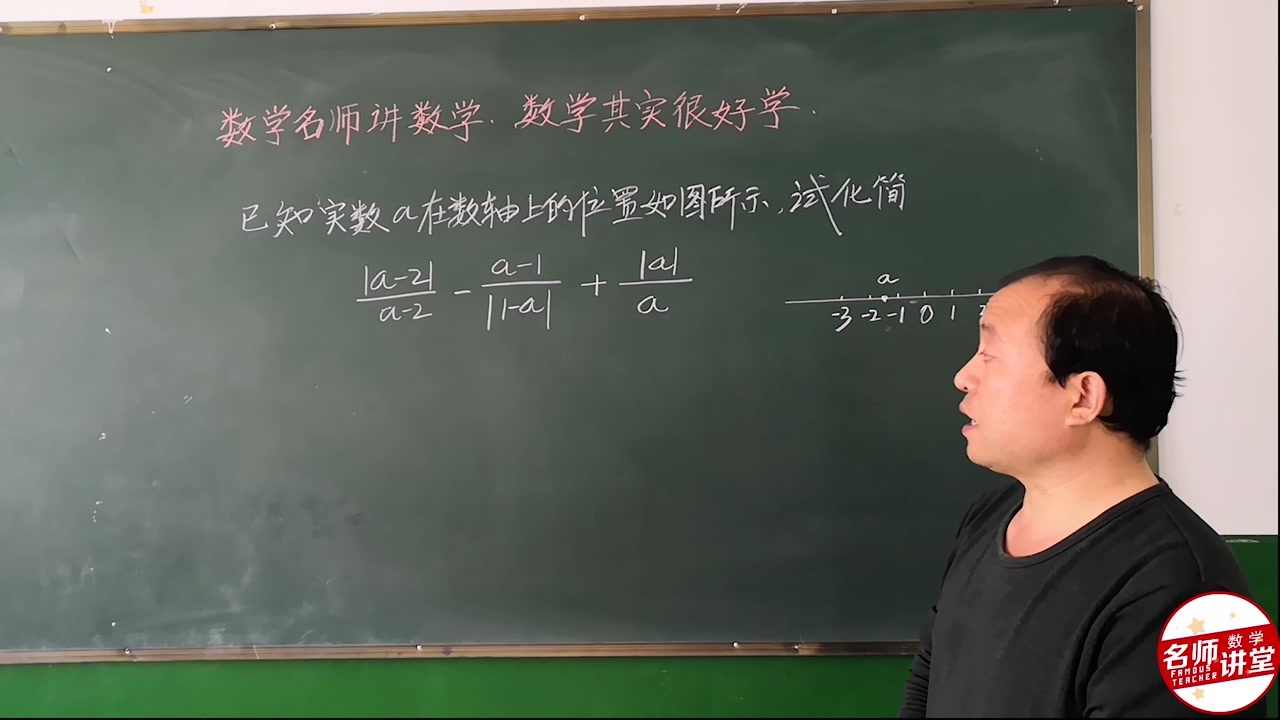 数学名师讲数学.数学其实很好学.
已知实数a在数轴上的位置如图所示,试化简
|a-2|/a-2 - a-1/|1-a| + |a|/a
a
-3 -2 -1 0 1
名师数学讲堂
FAMOUS TEACHER